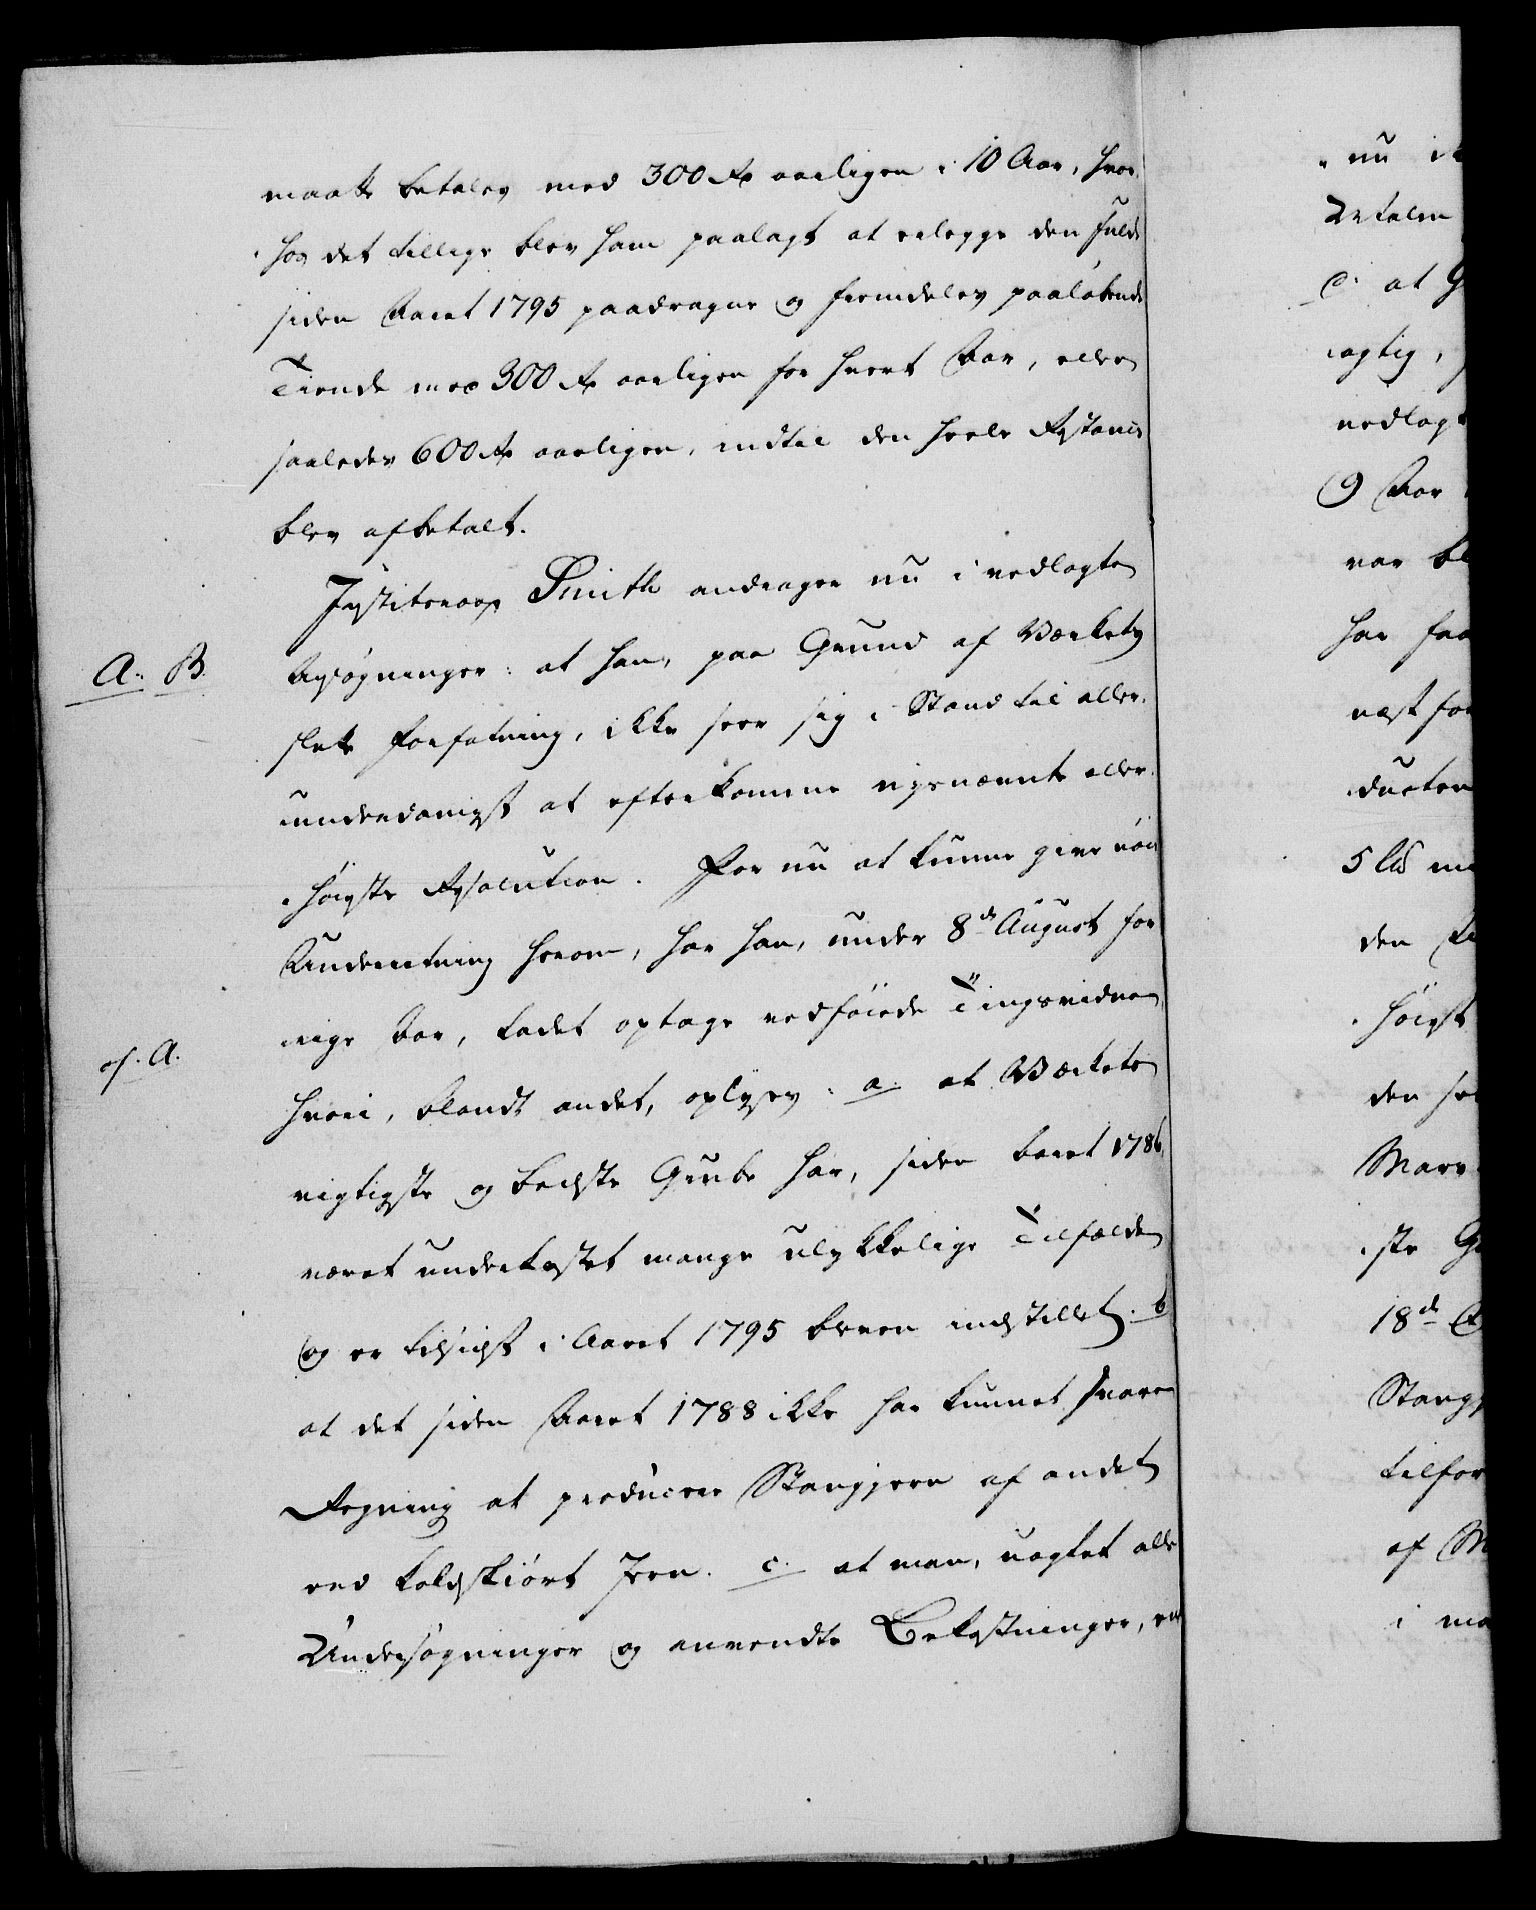 maatte betales med 300 Rd aarligen i 10 Aar, hvor-
hos det tillige blev ham paalagt at erlegge den fulde
siden Aaret 1795 paadragne og fremdeles paaløbende
Tiende med 300 Rd aarligen for hvert Aar, eller
saaledes 600 Rd aarligen, indtil den heele Restance
blev afbetalt.
Justitsraad Smith andrager nu i vedlagte
A. B.
Ansøgninger: at han, paa Grund af Værkets
slette Forfatning, ikke seer sig i Stand til aller-
underdanigst at efterkomme nysnævnte aller-
høieste Resolution. For nu at kunne give nøie
Underretning herom, har han, under 8de August for-
rige Aar, ladet optage vedføiede Tingsvidne,
cf. A.
hvori, blandt andet, oplyses: a. at Værkets
vigtigste og bedste Grube har, siden Aaret 1786,
været underkastet mange ulykkelige Tilfælde
og er tilsidst i Aaret 1795 bleven indstillet. b
at det siden Aaret 1788 ikke har kunnet svare
Regning at producere Stangjern af andet
end koldskiørt Jern. c. at man, uagtet alle
Undersøgninger og anvendte Bekostninger, en
nu ik
Betalin
e. at G
agtig,
nedlagt
9 Aar
var bl
har faa
næst for
ducten
5 Lb me
den
høiest
den
Marv
ste G
18de
Stangj
tilfor
af M
i ma